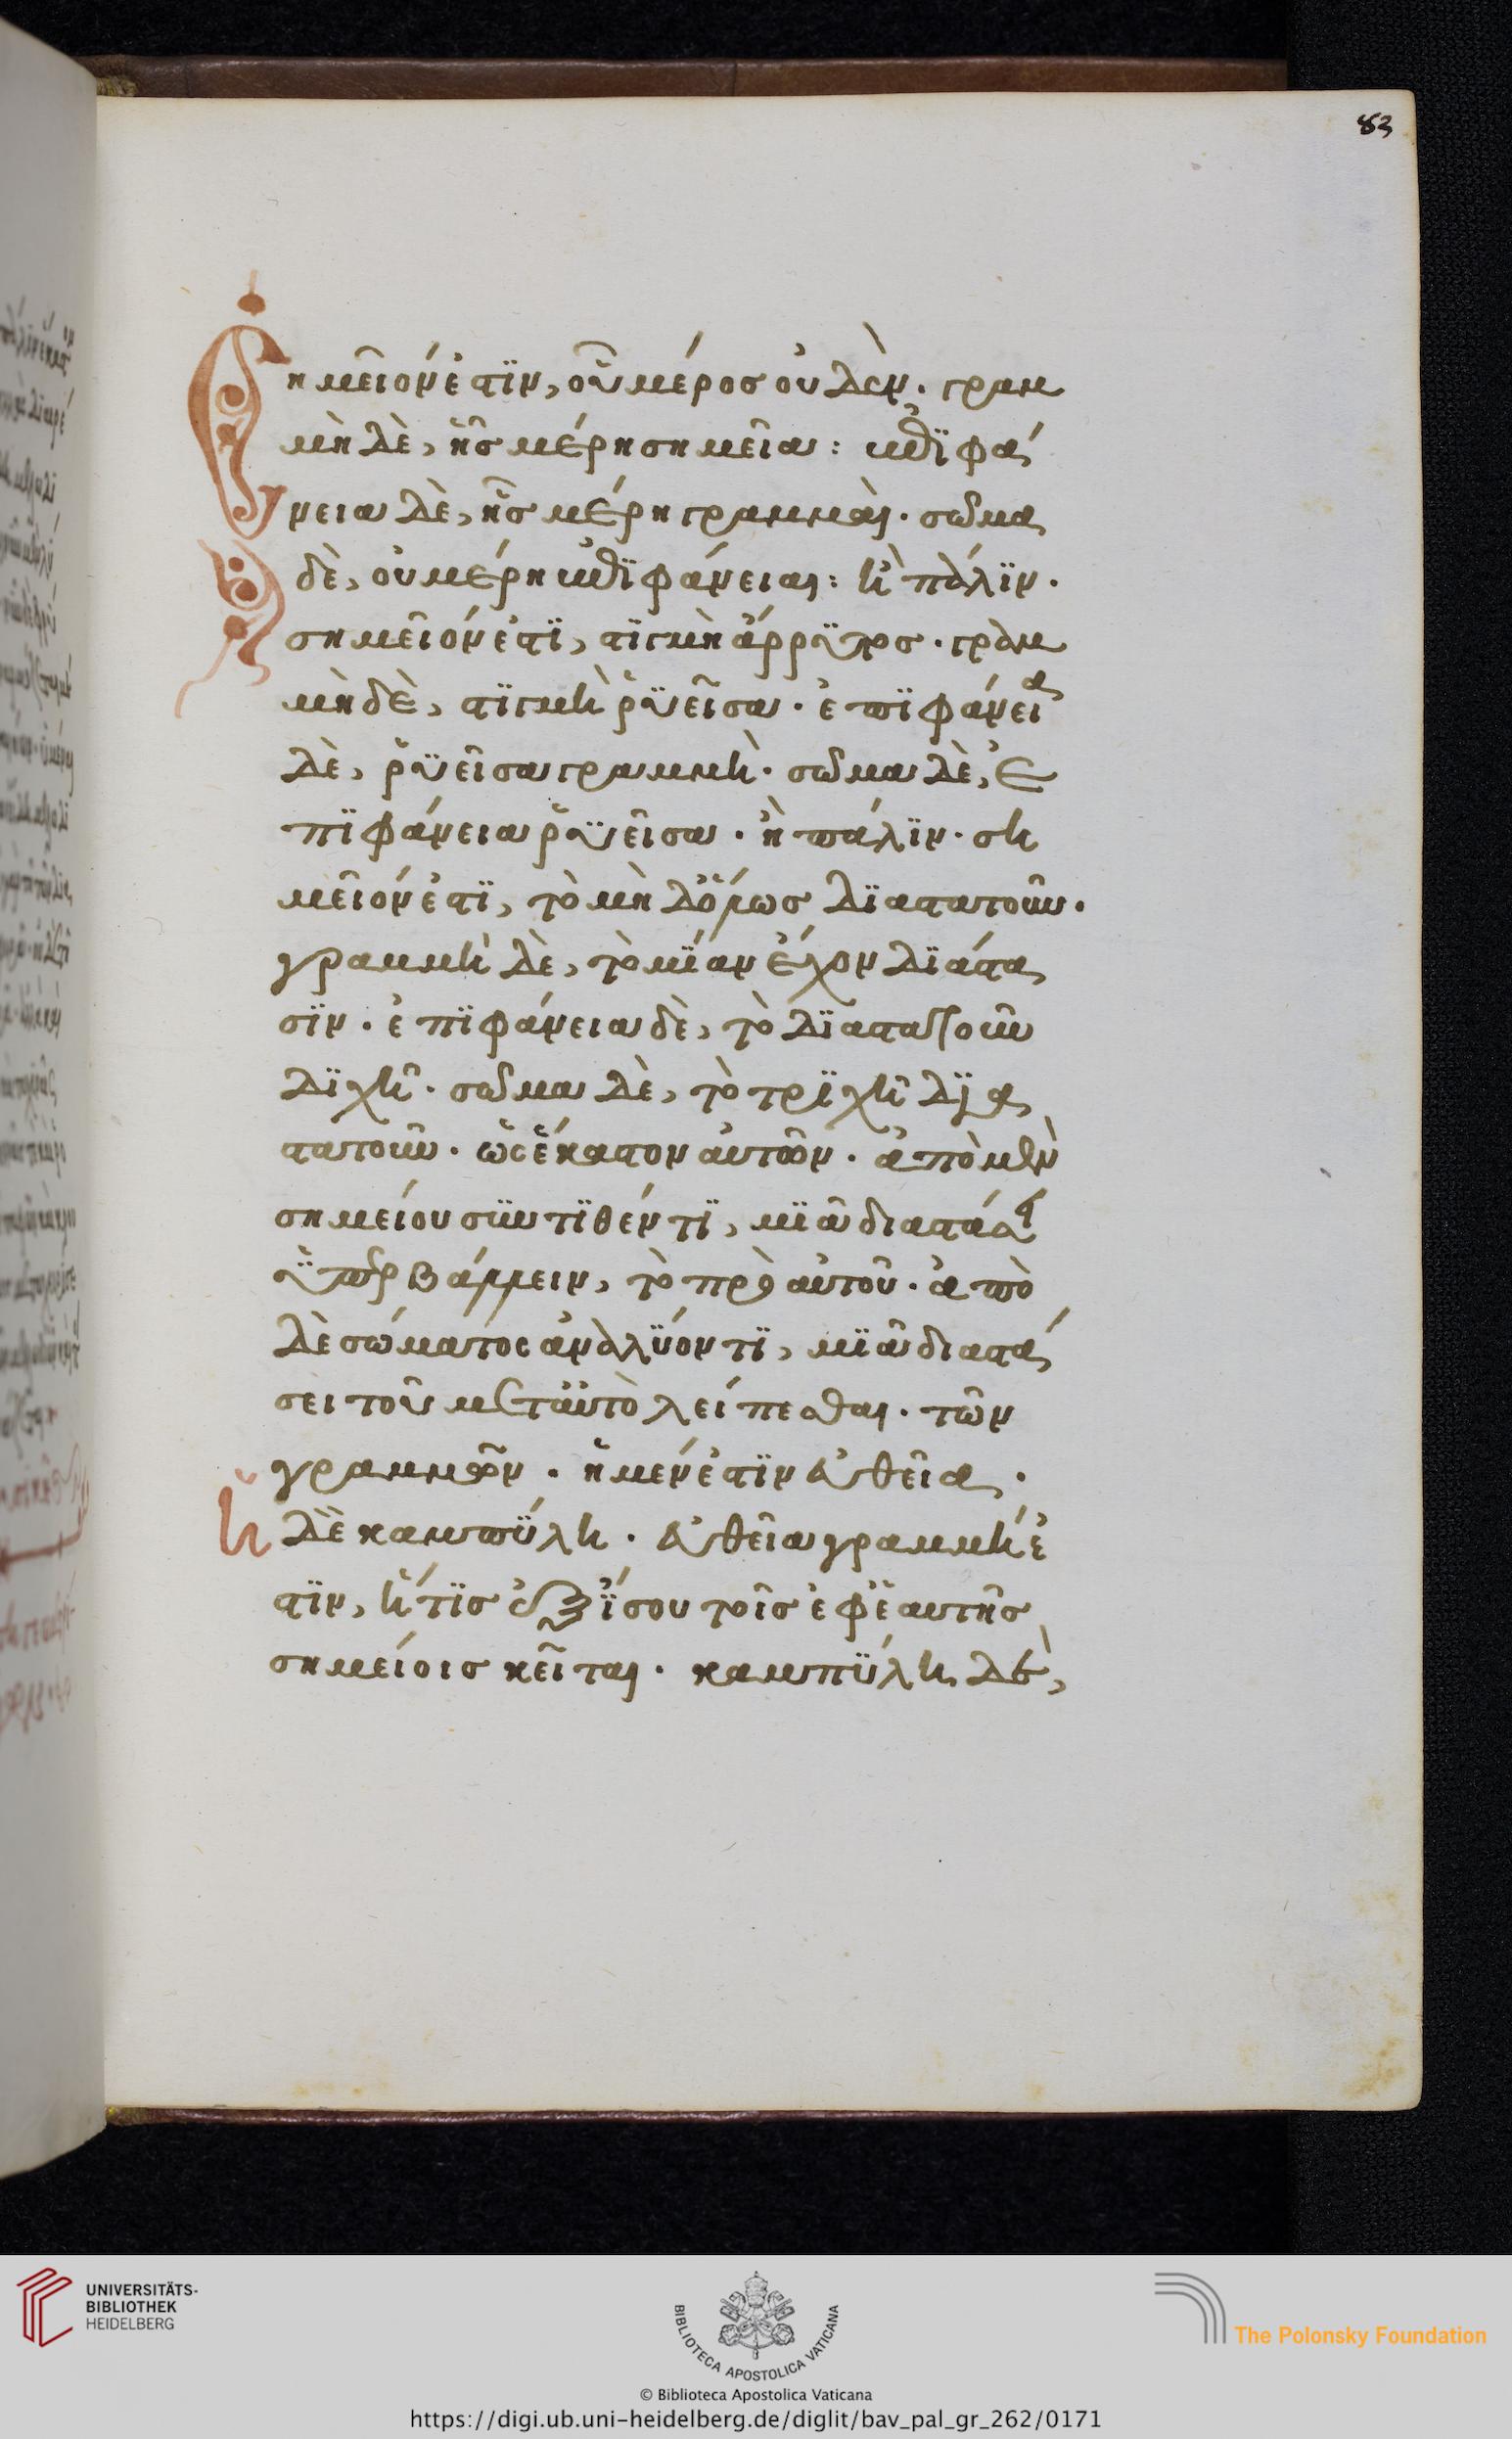 83
Σημεῖόν ἐστϊν, οὗ μέρος οὐδέν. γραμ
μὴ δὲ, ἧς μέρη σημεῖα: ἐπϊφά
νεια δὲ, ἧς μέρη γραμμαὶ. σῶμα
δὲ, οὗ μέρη ἐπϊφάνειαι: ἢ πάλϊν.
σημεῖόν ἐστϊ, στϊγμὴ ἄρρϋτος. γραμ
μὴ δὲ, στϊγμὴ ῥϋεῖσα. ἐπϊφάνεια
δὲ, ῥϋεῖσα γραμμὴ. σῶμα δὲ, ἐ
πϊφάνεια ῥϋεῖσα. ἢ πάλϊν. ση
μεῖόν ἐστϊ, τὸ μηδόλως δϊαστατοῦν.
γραμμὴ δὲ, τὸ μϊαν ἔχον δϊάστα
σϊν. ἐπϊφάνεια δὲ, τὸ δϊαστατοῦν
δϊχῆ. σῶμα δὲ, τὸ τρϊχῆ δϊα
στατοῦν. ὡς ἕκαστον αὐτῶν. ἀπὸ μὲν
σημείου σϋντϊθέντϊ, μϊᾶ διαστάσει
ὑπερβάλλειν, τὸ πρὸ αὐτοῦ. ἀπὸ
δὲ σώματος ἀναλϋοντϊ, μϊᾶ διαστά
σει τοῦ μετ αὐτὸ λείπεσθαι. τῶν
γραμμῶν. ἡ μέν ἐστϊν εὐθεῖα.
ἡ δὲ καμπϋλη. εὐθεῖα γραμμή ἐ
στϊν, ἥτϊς ἐξϊσου τοῖς ἐφ ἑαυτῆς
σημείοις κεῖται. καμπϋλη δὲ,
UNIVERSITÄTS-
BIBLIOTHEK
HEIDELBERG
BIBLIOTECA APOSTOLICA VATICANA
The Polonsky Foundation
© Biblioteca Apostolica Vaticana
https://digi.ub.uni-heidelberg.de/diglit/bav_pal_gr_262/0171